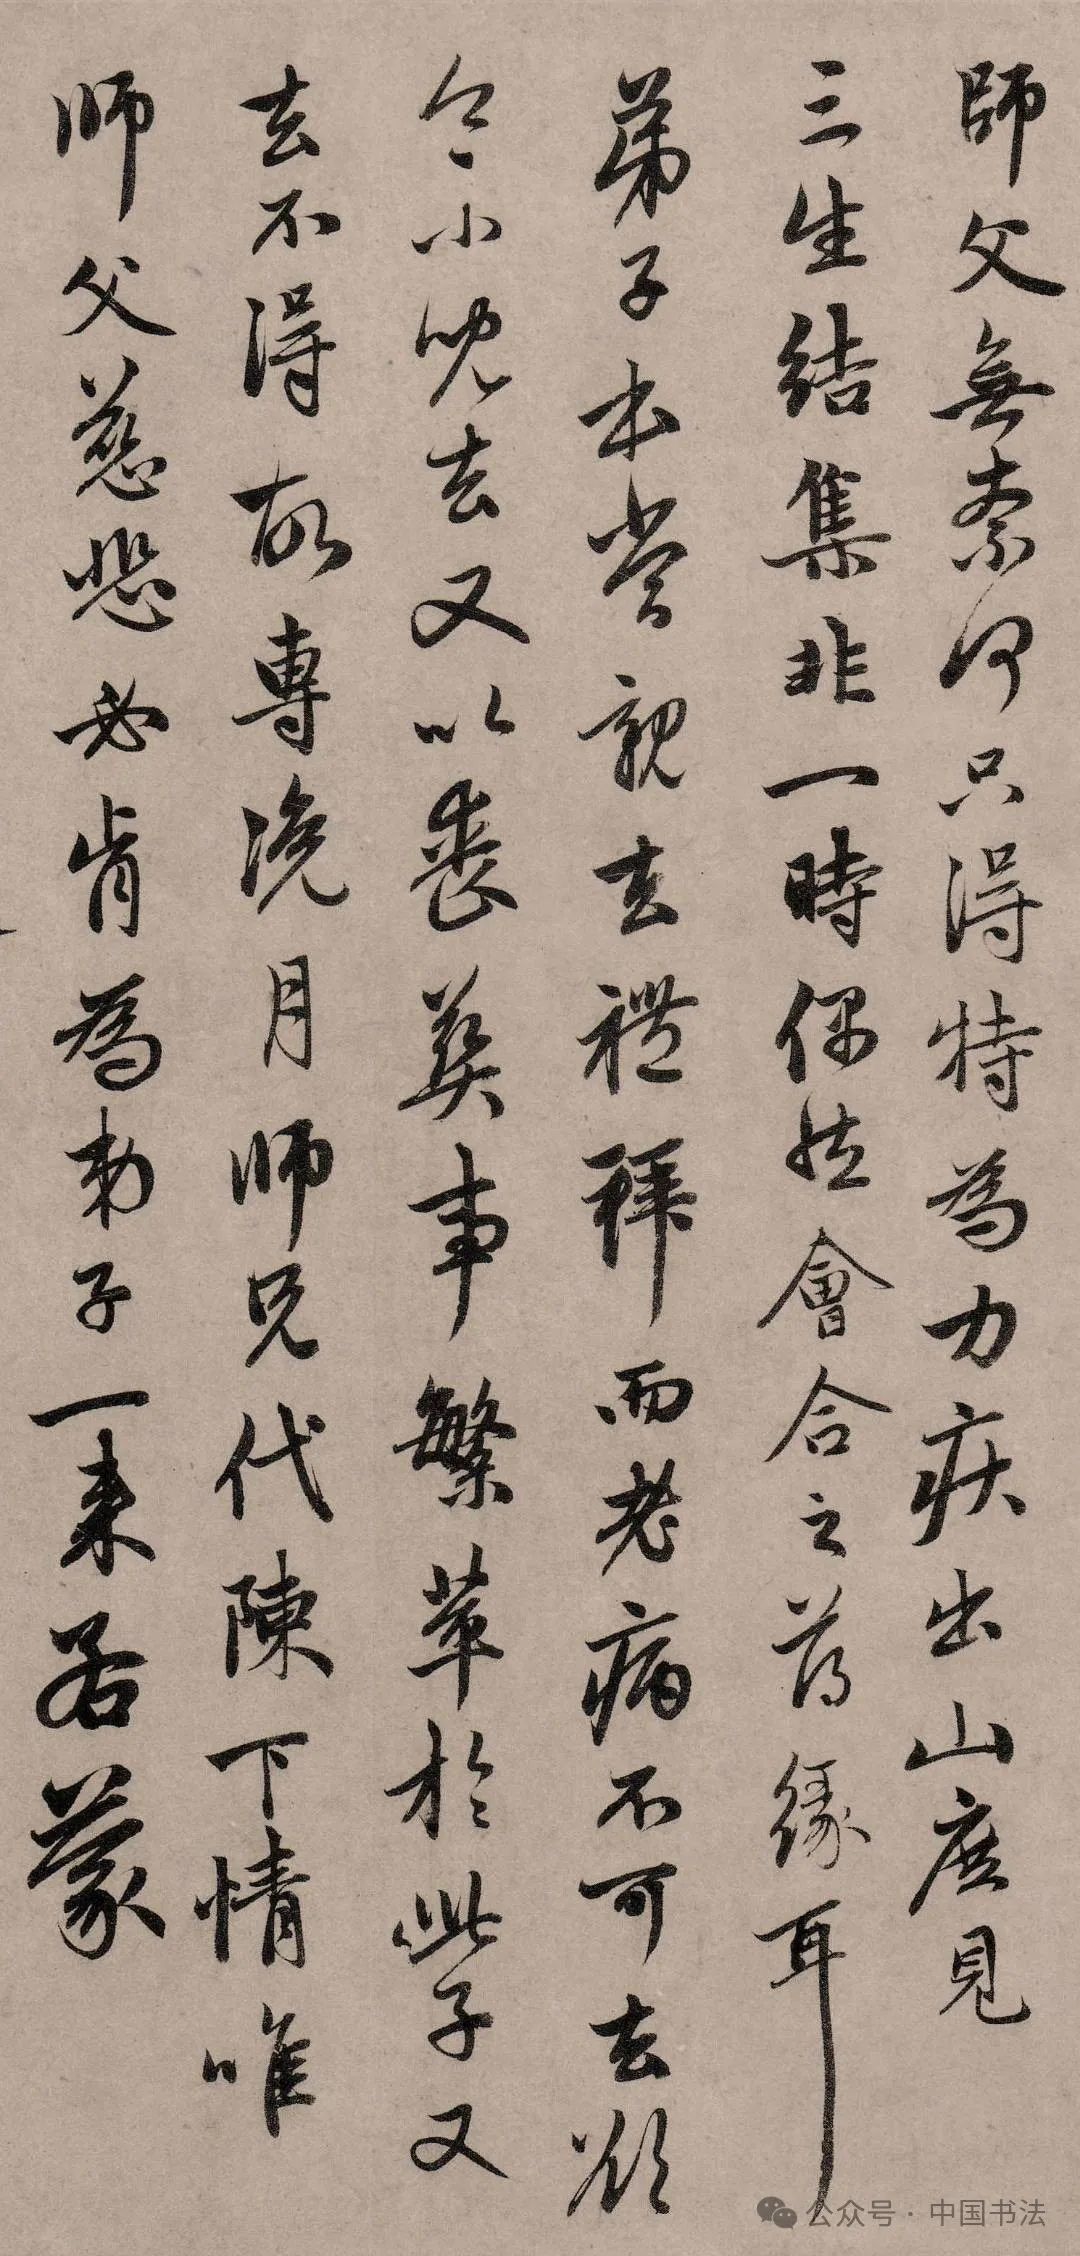 師父無奈何只得特為力疾出山庶見
三生結集非一時偶然會合之薄緣耳
弟子本當親去禮拜而老病不可去欲
令小兒去又以喪葬事繁萃於此子又
去不得故專浼月師兄代陳下情唯
师父慈悲必肯為弟子一来若蒙
公众号·中国书法